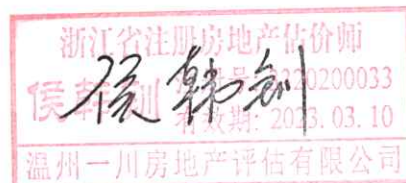 浙江省注册房地产估价师
侯韩创 号 20200033
侯韩创
有效期: 2023.03.10
温州一川房地产评估有限公司